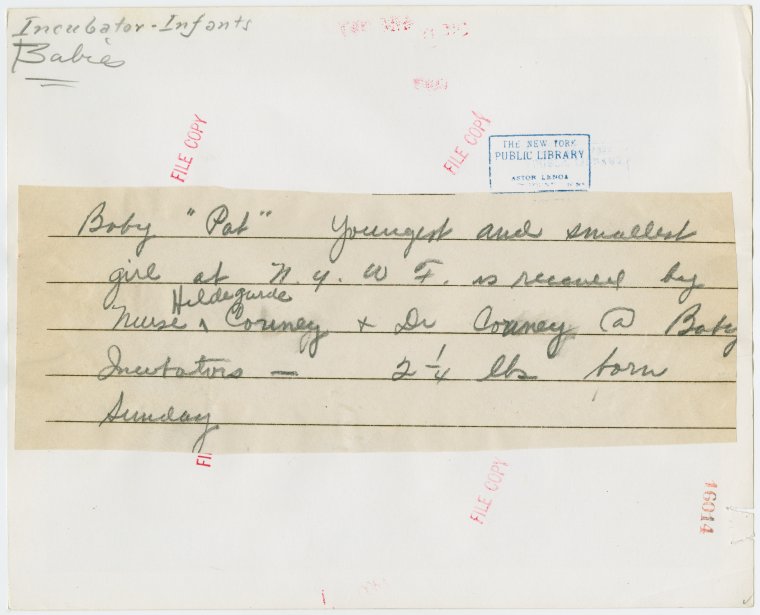 Incubator-Infants
Babies
FILE COPY
FILE COPY
THE NEW YORK
PUBLIC LIBRARY
ASTOR LENOX
Baby "Pat" Youngest and smallest
girl at N.Y.W F. is received by
Hildegarde
Nurse ^ Couney & Dr Couney @ Baby
Incubators — 2 1/4 lbs born
Sunday
FI
FILE COPY
16014